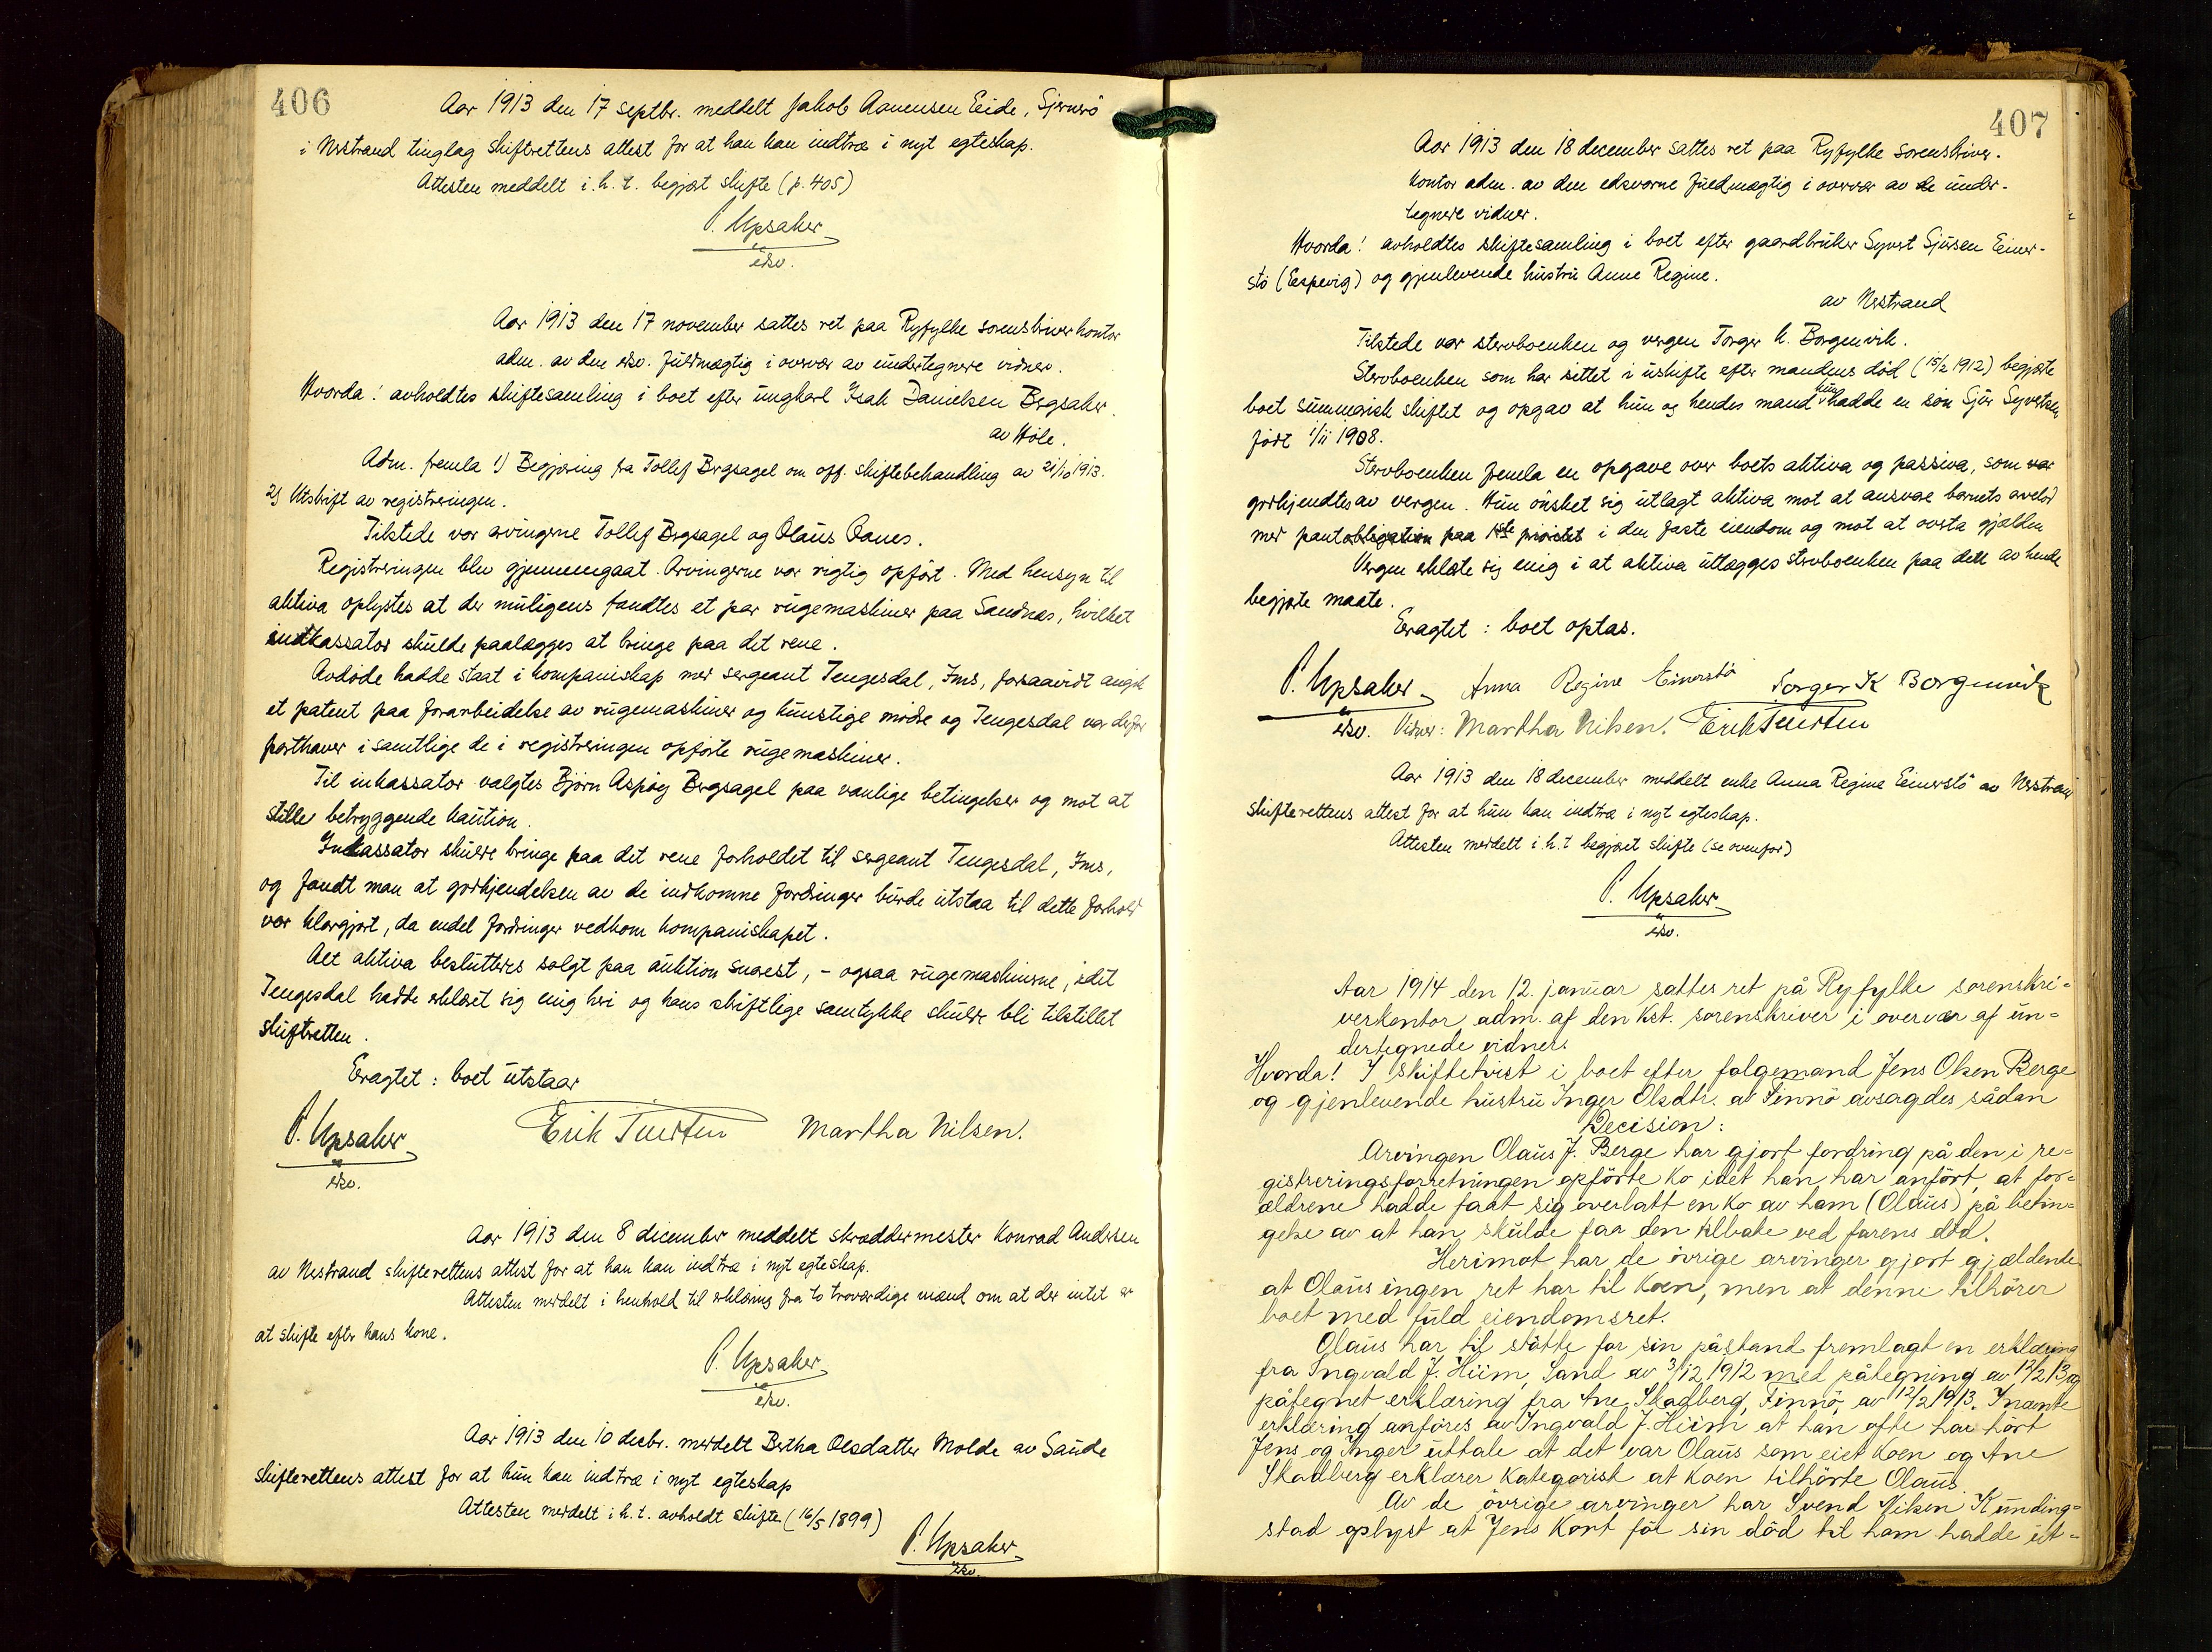 406
Aar 1913 den 17 septbr. meddelt Jakob Aanensen Eide, Sjernerö
i Nerstrand tinglag skifterettens attest for at han kan indtræ i nyt egteskap.
Attesten meddelt i. h. t. begjært skifte (p. 405)
P. Upsaker
edsv.
Aar 1913 den 17 november sattes ret paa Ryfylke sorenskriverkontor
adm. av den edsv. fuldmægtig i overvær av undertegnede vidner.
Hvorda! avholdtes skiftesamling i boet efter ungkarl Isak Danielsen Bergsaker
av Höle.
Adm. fremla 1) Begjæring fra Tollef Bergsagel om off. skiftebehandling av 21/10 1913.
2) Utskrift av registreringen.
Tilstede var arvingerne Tollef Bergsagel og Olaus Aanes.
Registreringen blev gjennemgaat. Arvingerne var rigtig opfört. Med hensyn til
aktiva oplystes at der muligens fandtes et par rugemaskiner paa Sandnæs, hvilket
indkassator skulde paalægges at bringe paa det rene.
Avdöde hadde staat i kompaniskap med sergeant Tengesdal, Ims, forsaavidt angik
et patent paa forarbeidelse av rugemaskiner og kunstige mödre og Tengesdal var derfor
parthaver i samtlige de i registreringen opförte rugemaskiner.
Til inkassator valgtes Björn Aspöy Bergsagel paa vanlige betingelser og mot at
stille betryggende kaution.
Inkassator skulde bringe paa det rene forholdet til sergeant Tengesdal, Ims,
og fandt man at godkjendelsen av de indkomne fordringer burde utstaa til dette forhold
var klargjort, da endel fordringer vedkom kompaniskapet.
Alt aktiva besluttedes solgt paa auktion snarest, - ogsaa rugemaskinerne, idet
Tengesdal hadde erklæret sig enig heri og hans skriftlige samtykke skulde bli tilstillet
skifteretten.
Eragtet: boet utstaar
P. Upsaker Erik Tuerten Martha Nilsen.
edsv.
Aar 1913 den 8 december meddelt skræddermester Konrad Andersen
av Nerstrand skifterettens attest for at han kan indtræ i nyt egteskap.
Attesten meddelt i henhold til erklæring fra to troværdige mænd om at der intet er
at skifte efter hans kone.
P. Upsaker
edsv.
Aar 1913 den 10 decbr. meddelt Bertha Olsdatter Molde av Saude
skifterettens attest for at hun kan indtræ i nyt egteskap
Attesten meddelt i. h. t. avholdt skifte (16/5 1899)
P. Upsaker
edsv.
407
Aar 1913 den 18 december sattes ret paa Ryfylke sorenskriver-
kontor adm. av den edsvorne fuldmægtig i overvær av de under-
tegnede vidner.
Hvorda! avholdtes skiftesamling i boet efter gaardbruker Syvert Sjursen Eimer-
stö (Espevig) og gjenlevende hustru Anne Regine.
av Nerstrand
Tilstede var stervboenken og vergen Torger K. Borgenvik.
Stervboenken som har sittet i uskifte efter mandens död (15/2 1912) begjærte
boet summarisk skiftet og opgav at hun og hendes mand kun hadde en sön Sjur Syvertsen
födt 1/11 1908.
Stervboenken fremla en opgave over boets aktiva og passiva, som var
godkjendtes av vergen. Hun önsket sig utlagt aktiva mot at ansvare barnets arvelod
med pantobligation paa 1ste prioritet i den faste eiendom og mot at overta gjælden
Vergen erklærte sig enig i at aktiva utlægges stervboenken paa den av hende
begjærte maate.
Eragtet: boet optas.
P. Upsaker Anna Regine Eimerstö Torger K Borgenvik
edsv. Vidner: Martha Nilsen. Erik Tuerten
Aar 1913 den 18 december meddelt enke Anna Regine Eimerstö av Nerstrand
skifterettens attest for at hun kan indtræ i nyt egteskap.
Attesten meddelt i. h. t begjæret skifte (se ovenfor)
P. Upsaker
edsv.
Aar 1914 den 12. januar sattes ret på Ryfylke sorenskri-
verkontor adm. af den kst. sorenskriver i overvær af un-
dertegnede vidner.
Hvorda! I skiftetvist i boet efter folgemand Jens Olsen Berge
og gjenlevende hustru Inger Olsdtr. av Finnö avsagdes sådan
Decision:
Arvingen Olaus J. Berge har gjort fordring på den i re-
gistreringsforretningen opförte ko idet han har anfört, at for-
ældrene hadde faat sig overlatt en ko av ham (Olaus) på betin-
gelse av at han skulde faa den tilbake ved farens död.
Herimot har de övrige arvinger gjort gjældende
at Olaus ingen ret har til koen, men at denne tilhörer
boet med fuld eiendomsret.
Olaus har til stötte for sin påstand fremlagt en erklæring
fra Ingvald J. Hiim, Sand av 3/12 1912 med påtegning av 12/2 13 og
påtegnet erklæring fra Ane Skadberg, Finnö, av 12/2 1913. I nævnte
erklæring anföres av Ingvald J. Hiim at han ofte har hört
Jens og Inger uttale at det var Olaus som eiet koen og Ane
Skadberg erklærer kategorisk at koen tilhörte Olaus.
Av de övrige arvinger har Svend Nilsen Kunding-
stad oplyst at Jens kort för sin död til ham hadde ut-